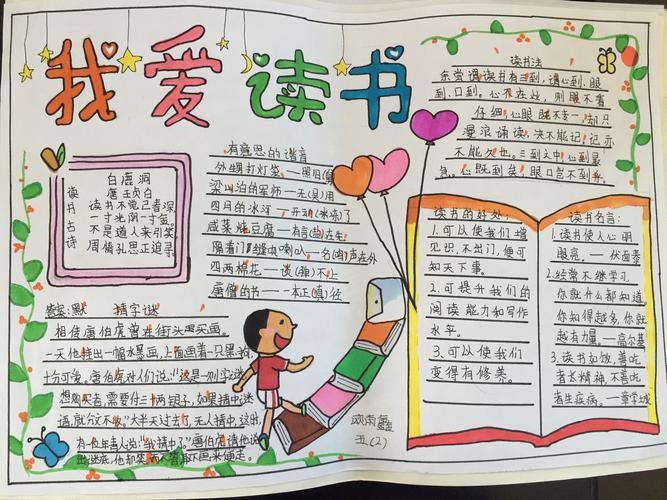 我爱读书
读书古诗
白鹿洞
唐王贞白
读书不觉已春深
一寸光阴一寸金
不是道人来引笑
周情孔思正追寻
有意思的谐音
外甥打灯笼——照旧(舅)
梁山泊的军师——无(吴)用
四月的冰河——开动(冰冻)了
咸菜烧豆腐——有言(盐)在先
隔着门缝吹喇叭——名(鸣)声在外
四两棉花——谈(弹)不上
唐僧的书——一本正(真)经
读书法
余尝谓读书有三到,谓心到、眼
到、口到。心不在此,则眼不看
仔细,心眼既不专一,却只
漫浪诵读,决不能记,记亦
不能久也。三到之中,心到最
急。心既到矣,眼口岂不到乎。
读书的好处:
1.可以使我们增
见识,不出门,便可
知天下事。
2.可提升我们的
阅读能力和写作
水平。
3.可以使我们
变得有修养。
读书名言:
1.读书使人心明
眼亮。——伏尔泰
2.经常不继学习,
你就什么都知道
你知得越多,你就
越有力量。——高尔基
3.读书如饭,善吃
者长精神,不善吃
者生疾病。——章学城
答案:默
猜字谜
相传唐伯虎曾在街头卖买画。
一天他挂出一幅水墨画,上面画着一只黑狗,
十分可爱。唐伯虎对人们说:"这是一则字谜
想购买者,需要付三十两银子,如果猜中谜
语,就分文不收。"大半天过去了,无人猜中,这时,
有一位年青人说"我猜中了。"唐伯虎请他说
出谜底,他却笑而不答取下画来便走。
五(2)